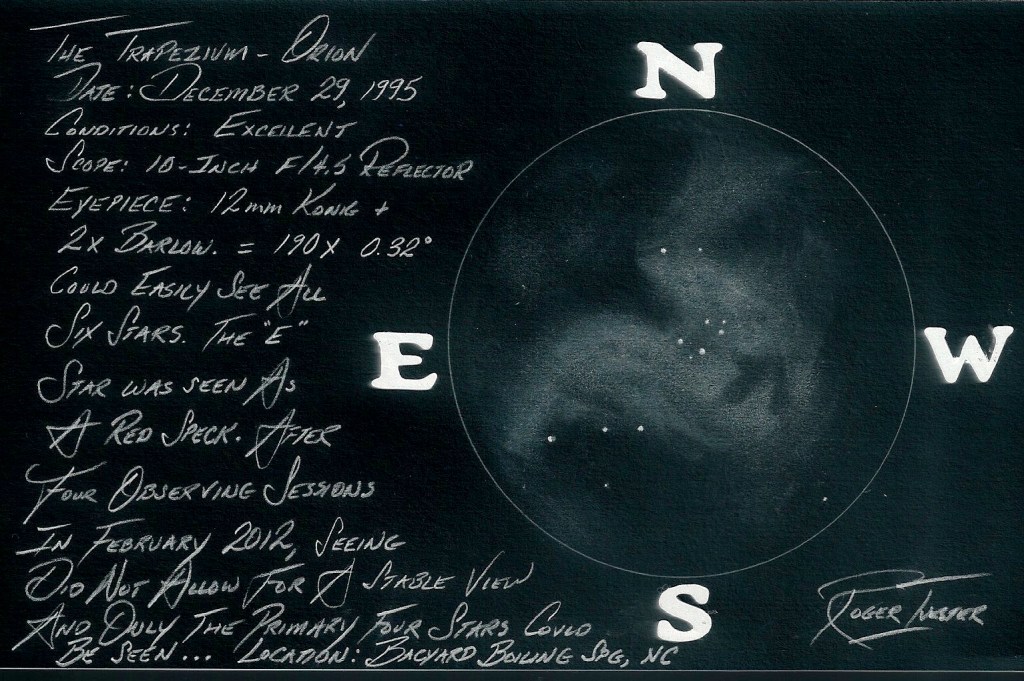 The Trapezium - Orion
Date: December 29, 1995
Conditions: Excellent
Scope: 10-Inch F/4.5 Reflector
Eyepiece: 12mm Konig +
2x Barlow. = 190x 0.32°
Could Easily See All
Six Stars. The "E"
Star was seen As
A Red Speck. After
Four Observing Sessions
In February 2012, Seeing
Did Not Allow For A Stable View
And Only The Primary Four Stars Could
Be Seen... Location: Bacyard Boiling Spg, NC
N
E
W
S
Roger Ivester